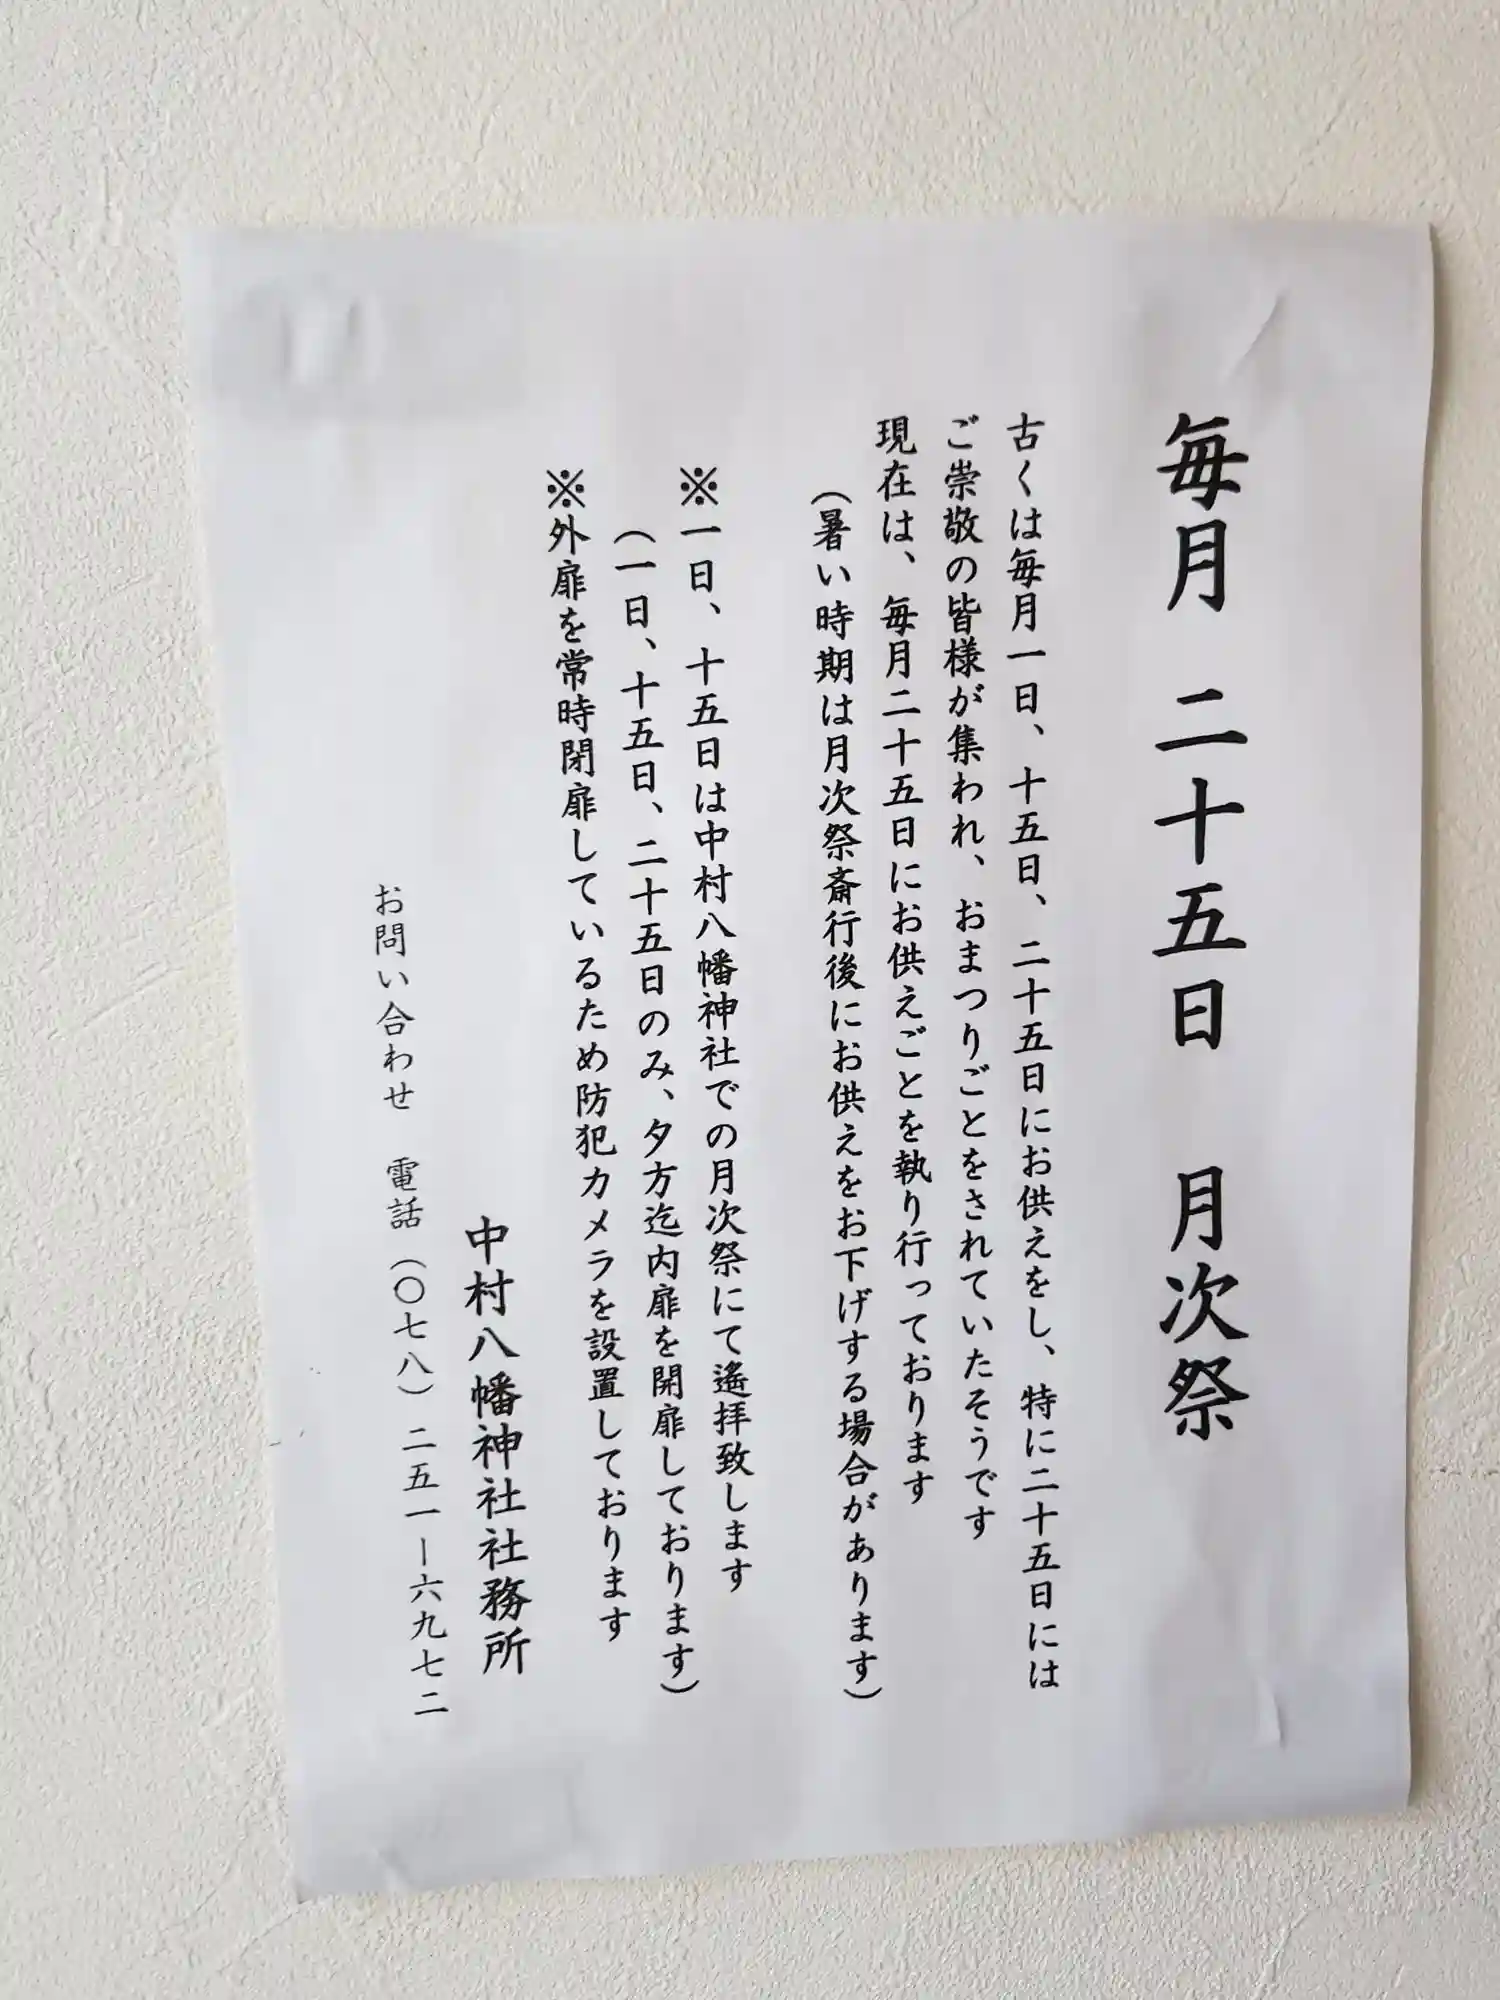 毎月 二十五日 月次祭
古くは毎月一日、十五日、二十五日にお供えをし、特に二十五日には
ご崇敬の皆様が集われ、おまつりごとをされていたそうです
現在は、毎月二十五日にお供えごとを執り行っております
(暑い時期は月次祭斎行後にお供えをお下げする場合があります)
※一日、十五日は中村八幡神社での月次祭にて遙拝致します
(一日、十五日、二十五日のみ、夕方迄内扉を開扉しております)
※外扉を常時閉扉しているため防犯カメラを設置しております
中村八幡神社社務所
お問い合わせ 電話(〇七八)二五一ー六九七二